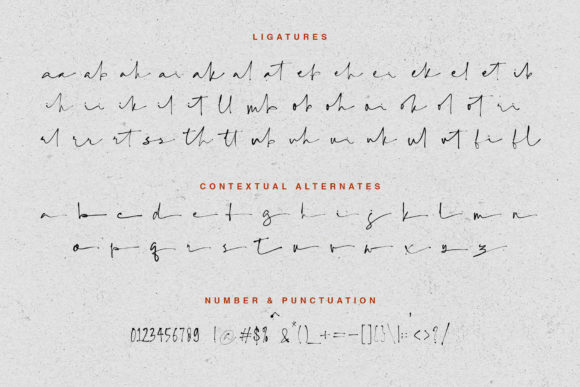 LIGATURES
aa ab ah ai ak al at eb eh ei ek el et ib
ih ii ik il it ll mb ob oh oi ok ol ot ri
rl rr rt ss th tt ub uh ui uk ul ut fi fl
CONTEXTUAL ALTERNATES
a b c d e f g h i j k l m n
o p q r s t u v w x y z
NUMBER & PUNCTUATION
0123456789 !@#$%^&*()_+=-[]{}\|:;<>?/